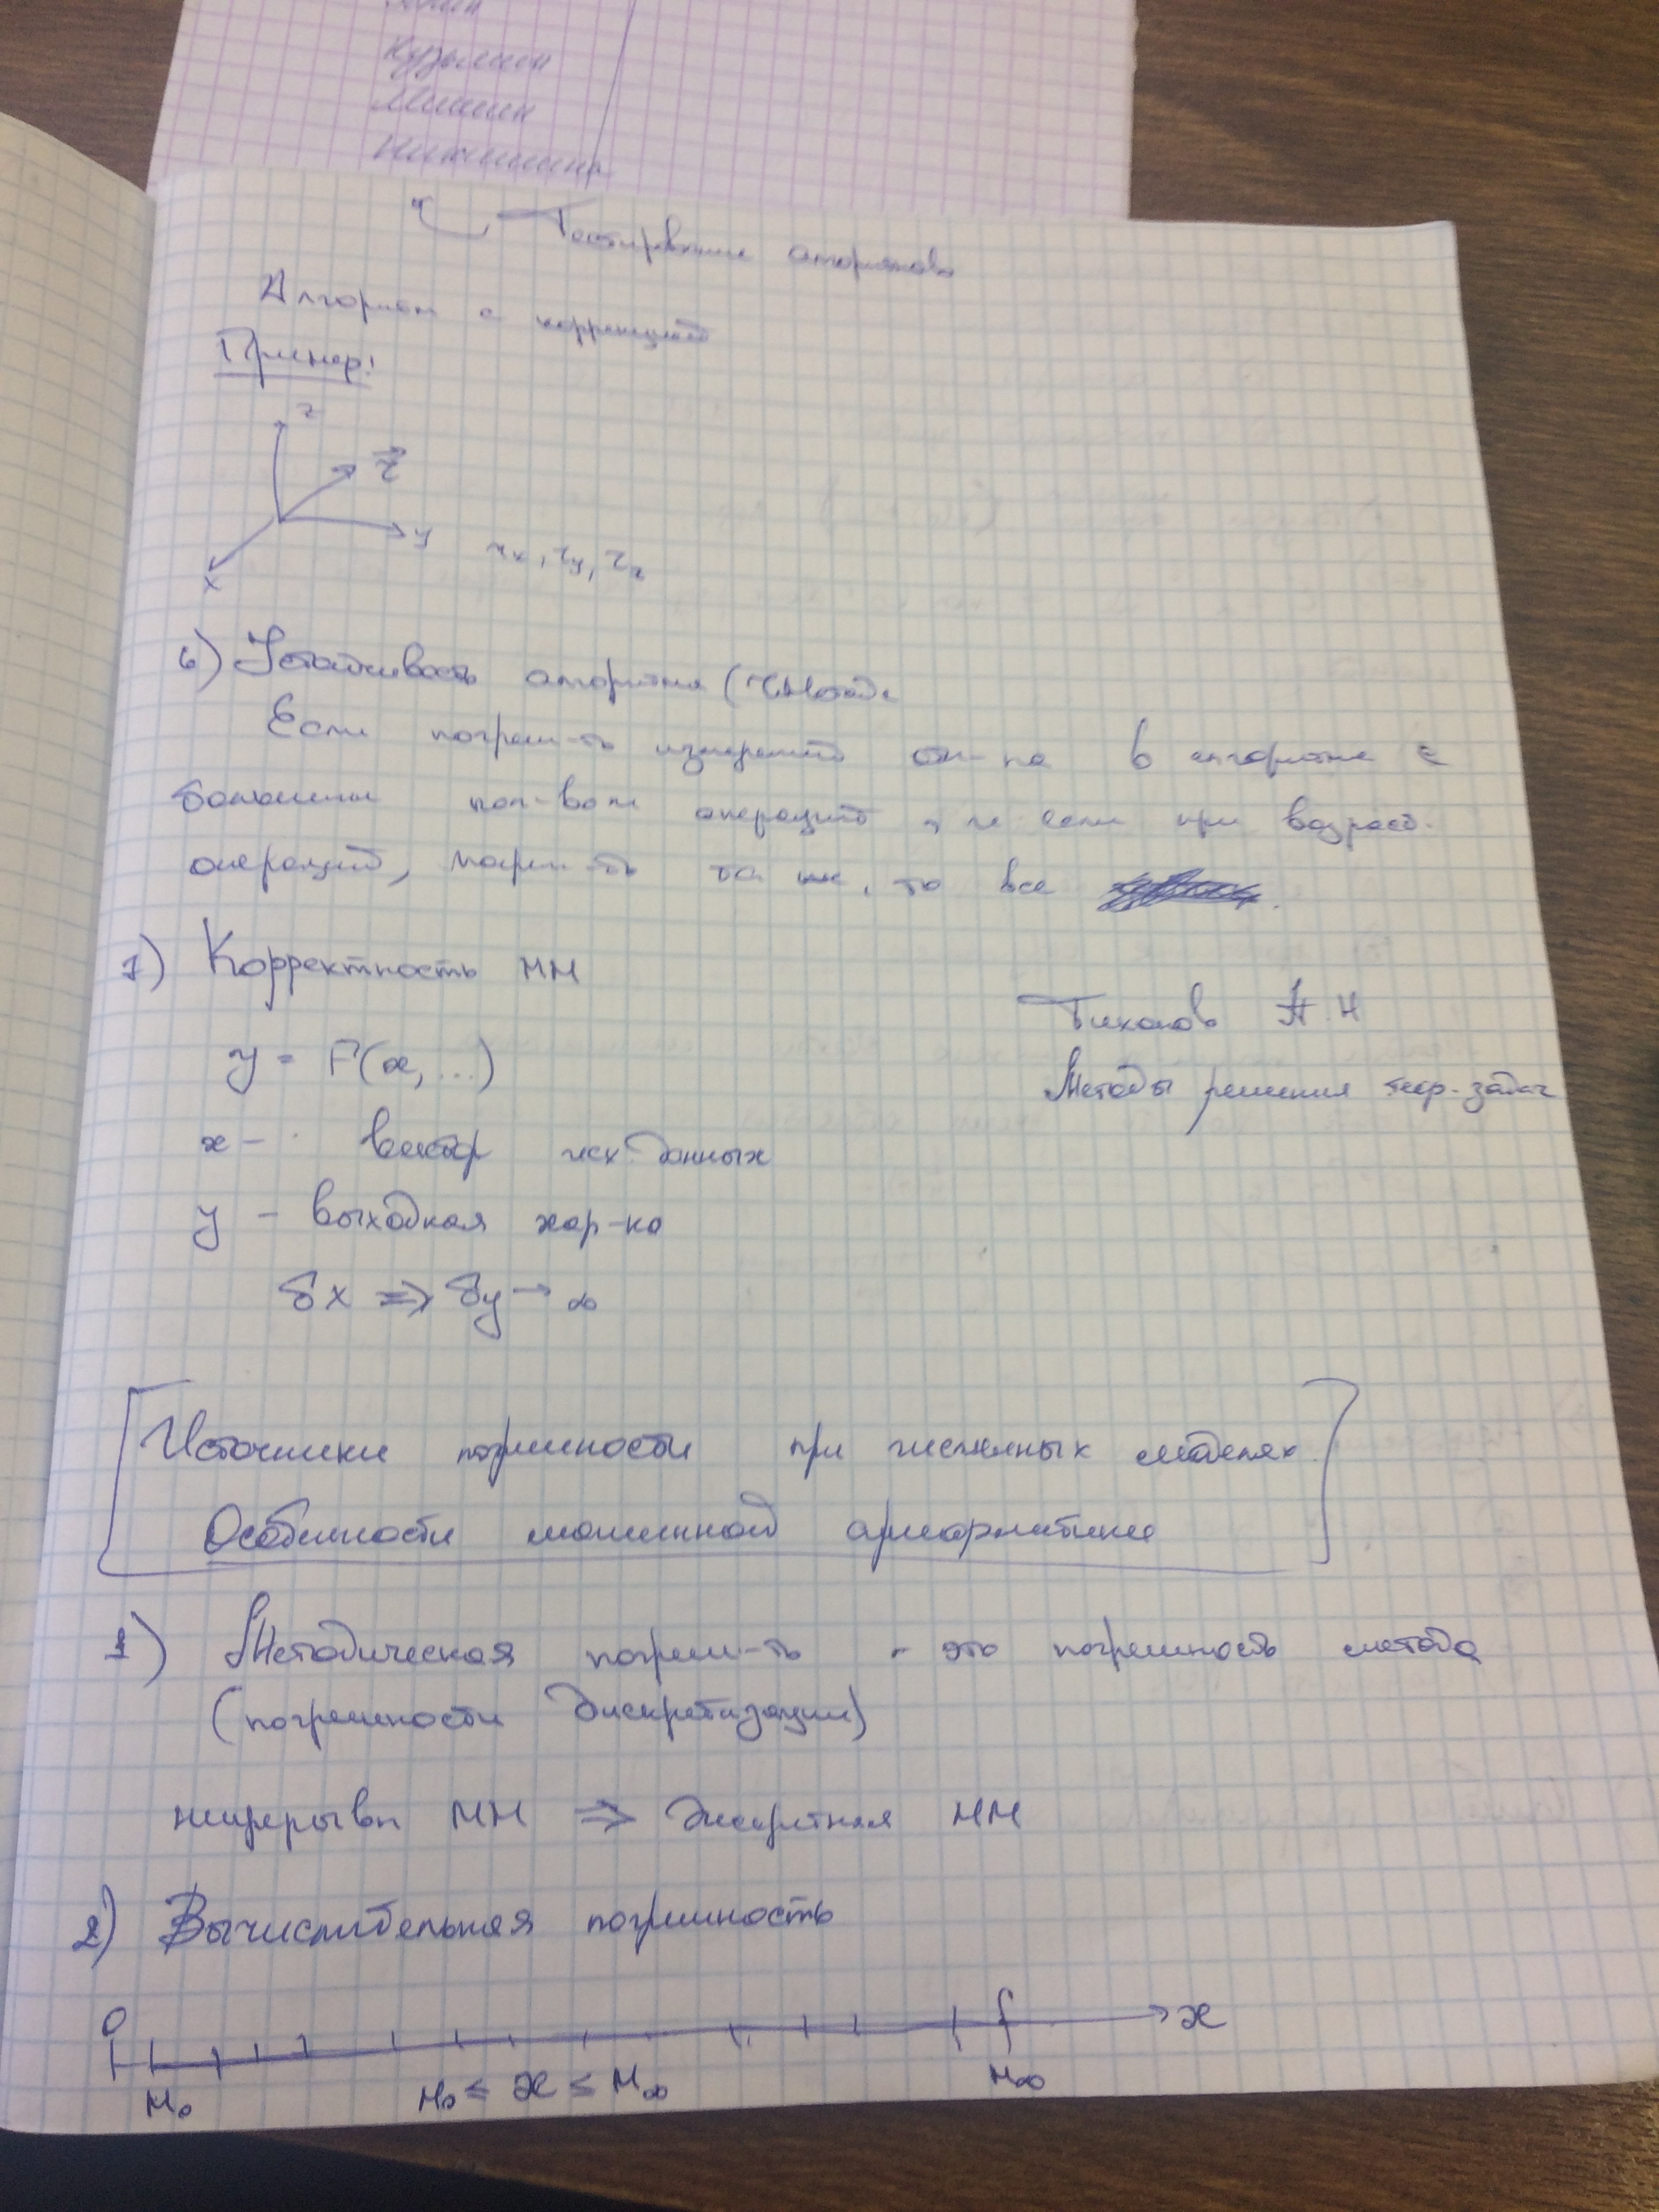 Кузьмин
Мишин
Тестирование алгоритмов
Алгоритм с коррекцией
Пример:
z
r
y
x
rx, ry, rz
6) Устойчивость алгоритма (ЧМетода
Если погреш-ть измерений в алгоритме с
большим кол-вом операций, и если при возраст.
операций, погреш-ть та же, то все
7) Корректность ММ
Тихонов А.Н
y = F(x, ...)
Методы решения некор-задач
x - вектор исх. данных
y - выходная хар-ка
δx ⇒ δy → ∞
Источники погрешности при численных моделях
Особенности машинной арифметики
1) Методическая погреш-ть - это погрешность метода
(погрешности дискретизации)
непрерывн ММ ⇒ Дискретная ММ
2) Вычислительная погрешность
0
x
M0
M0 ≤ x ≤ M∞
M∞